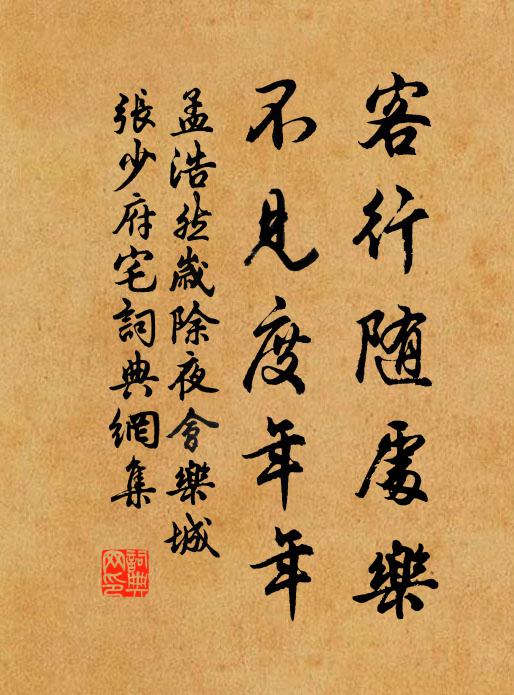 客行随處樂
不見度年年
孟浩然歲除夜會樂城
張少府宅詞典網集
詞典網印